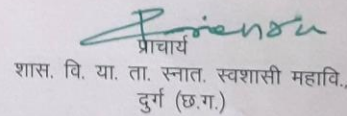 प्राचार्य
शास. वि. या. ता. स्नात. स्वशासी महावि.,
दुर्ग (छ.ग.)